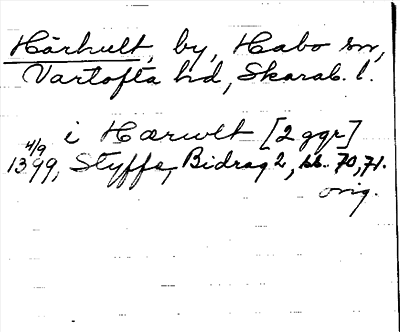 Hårhult, by, Habo sn,
Vartofta hd, Skarab. l.
i Harwlt [2 ggr]
4/9
1399, Styffe, Bidrag 2, bl. 70, 71.
orig.